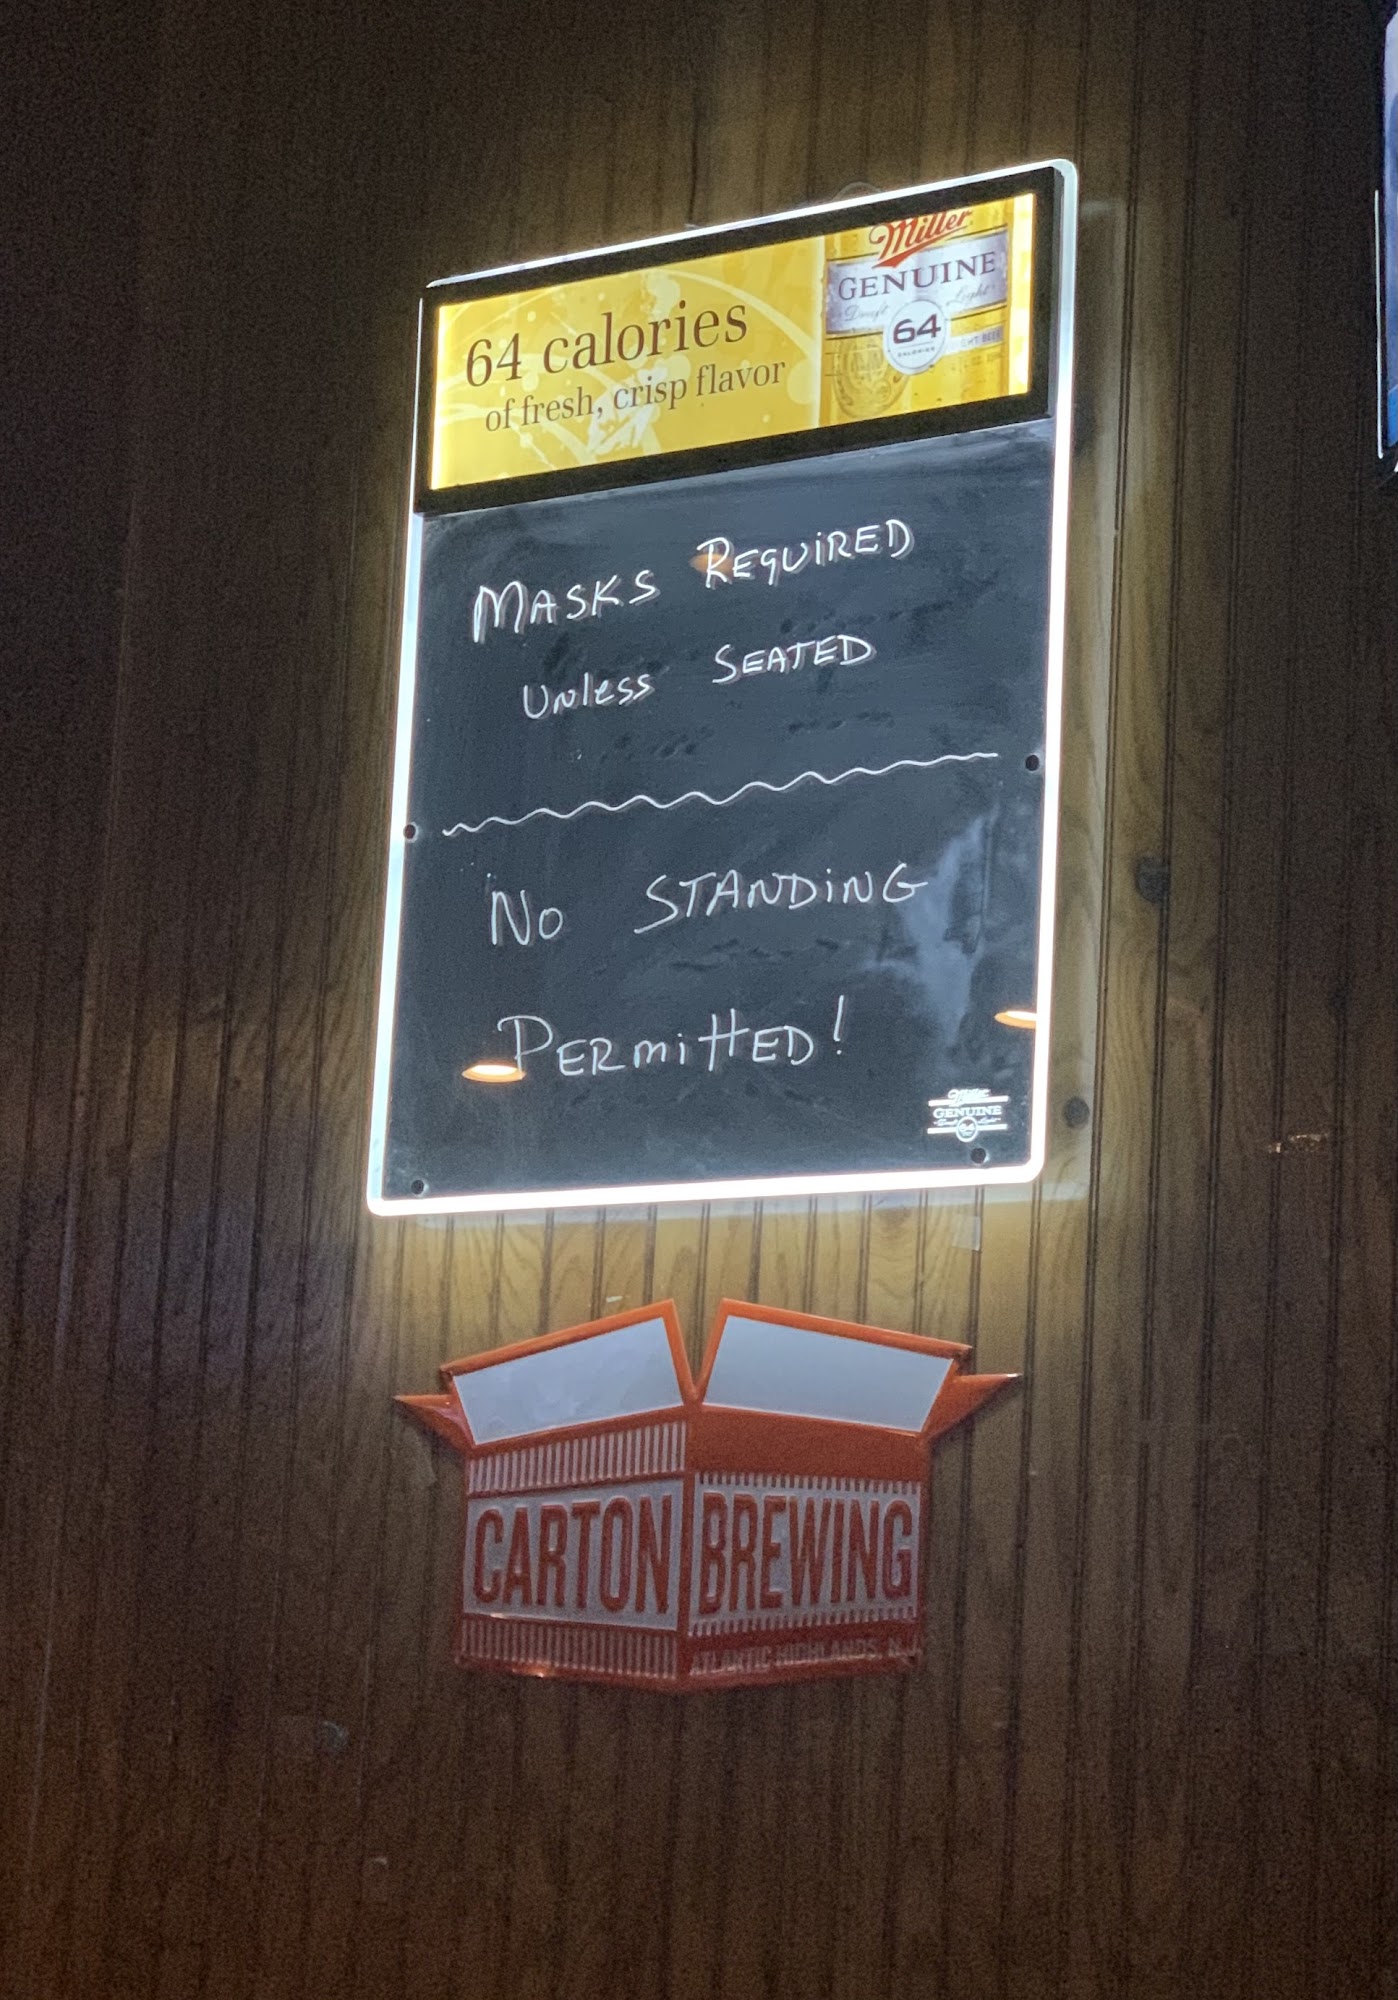 Miller
GENUINE
Draft Light
64
CALORIES
64 calories
of fresh, crisp flavor
MASKS REQUIRED
UNless SEATED
No STANDiNG
PERmittED!
Miller
GENUINE
64
CARTON BREWING
ATLANTIC HIGHLANDS, NJ